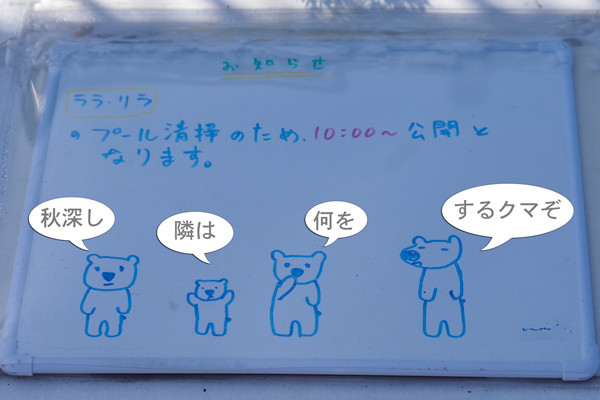 お知らせ
ララ・リラ
のプール清掃のため、10:00〜公開と
なります。
秋深し
隣は
何を
するクマぞ